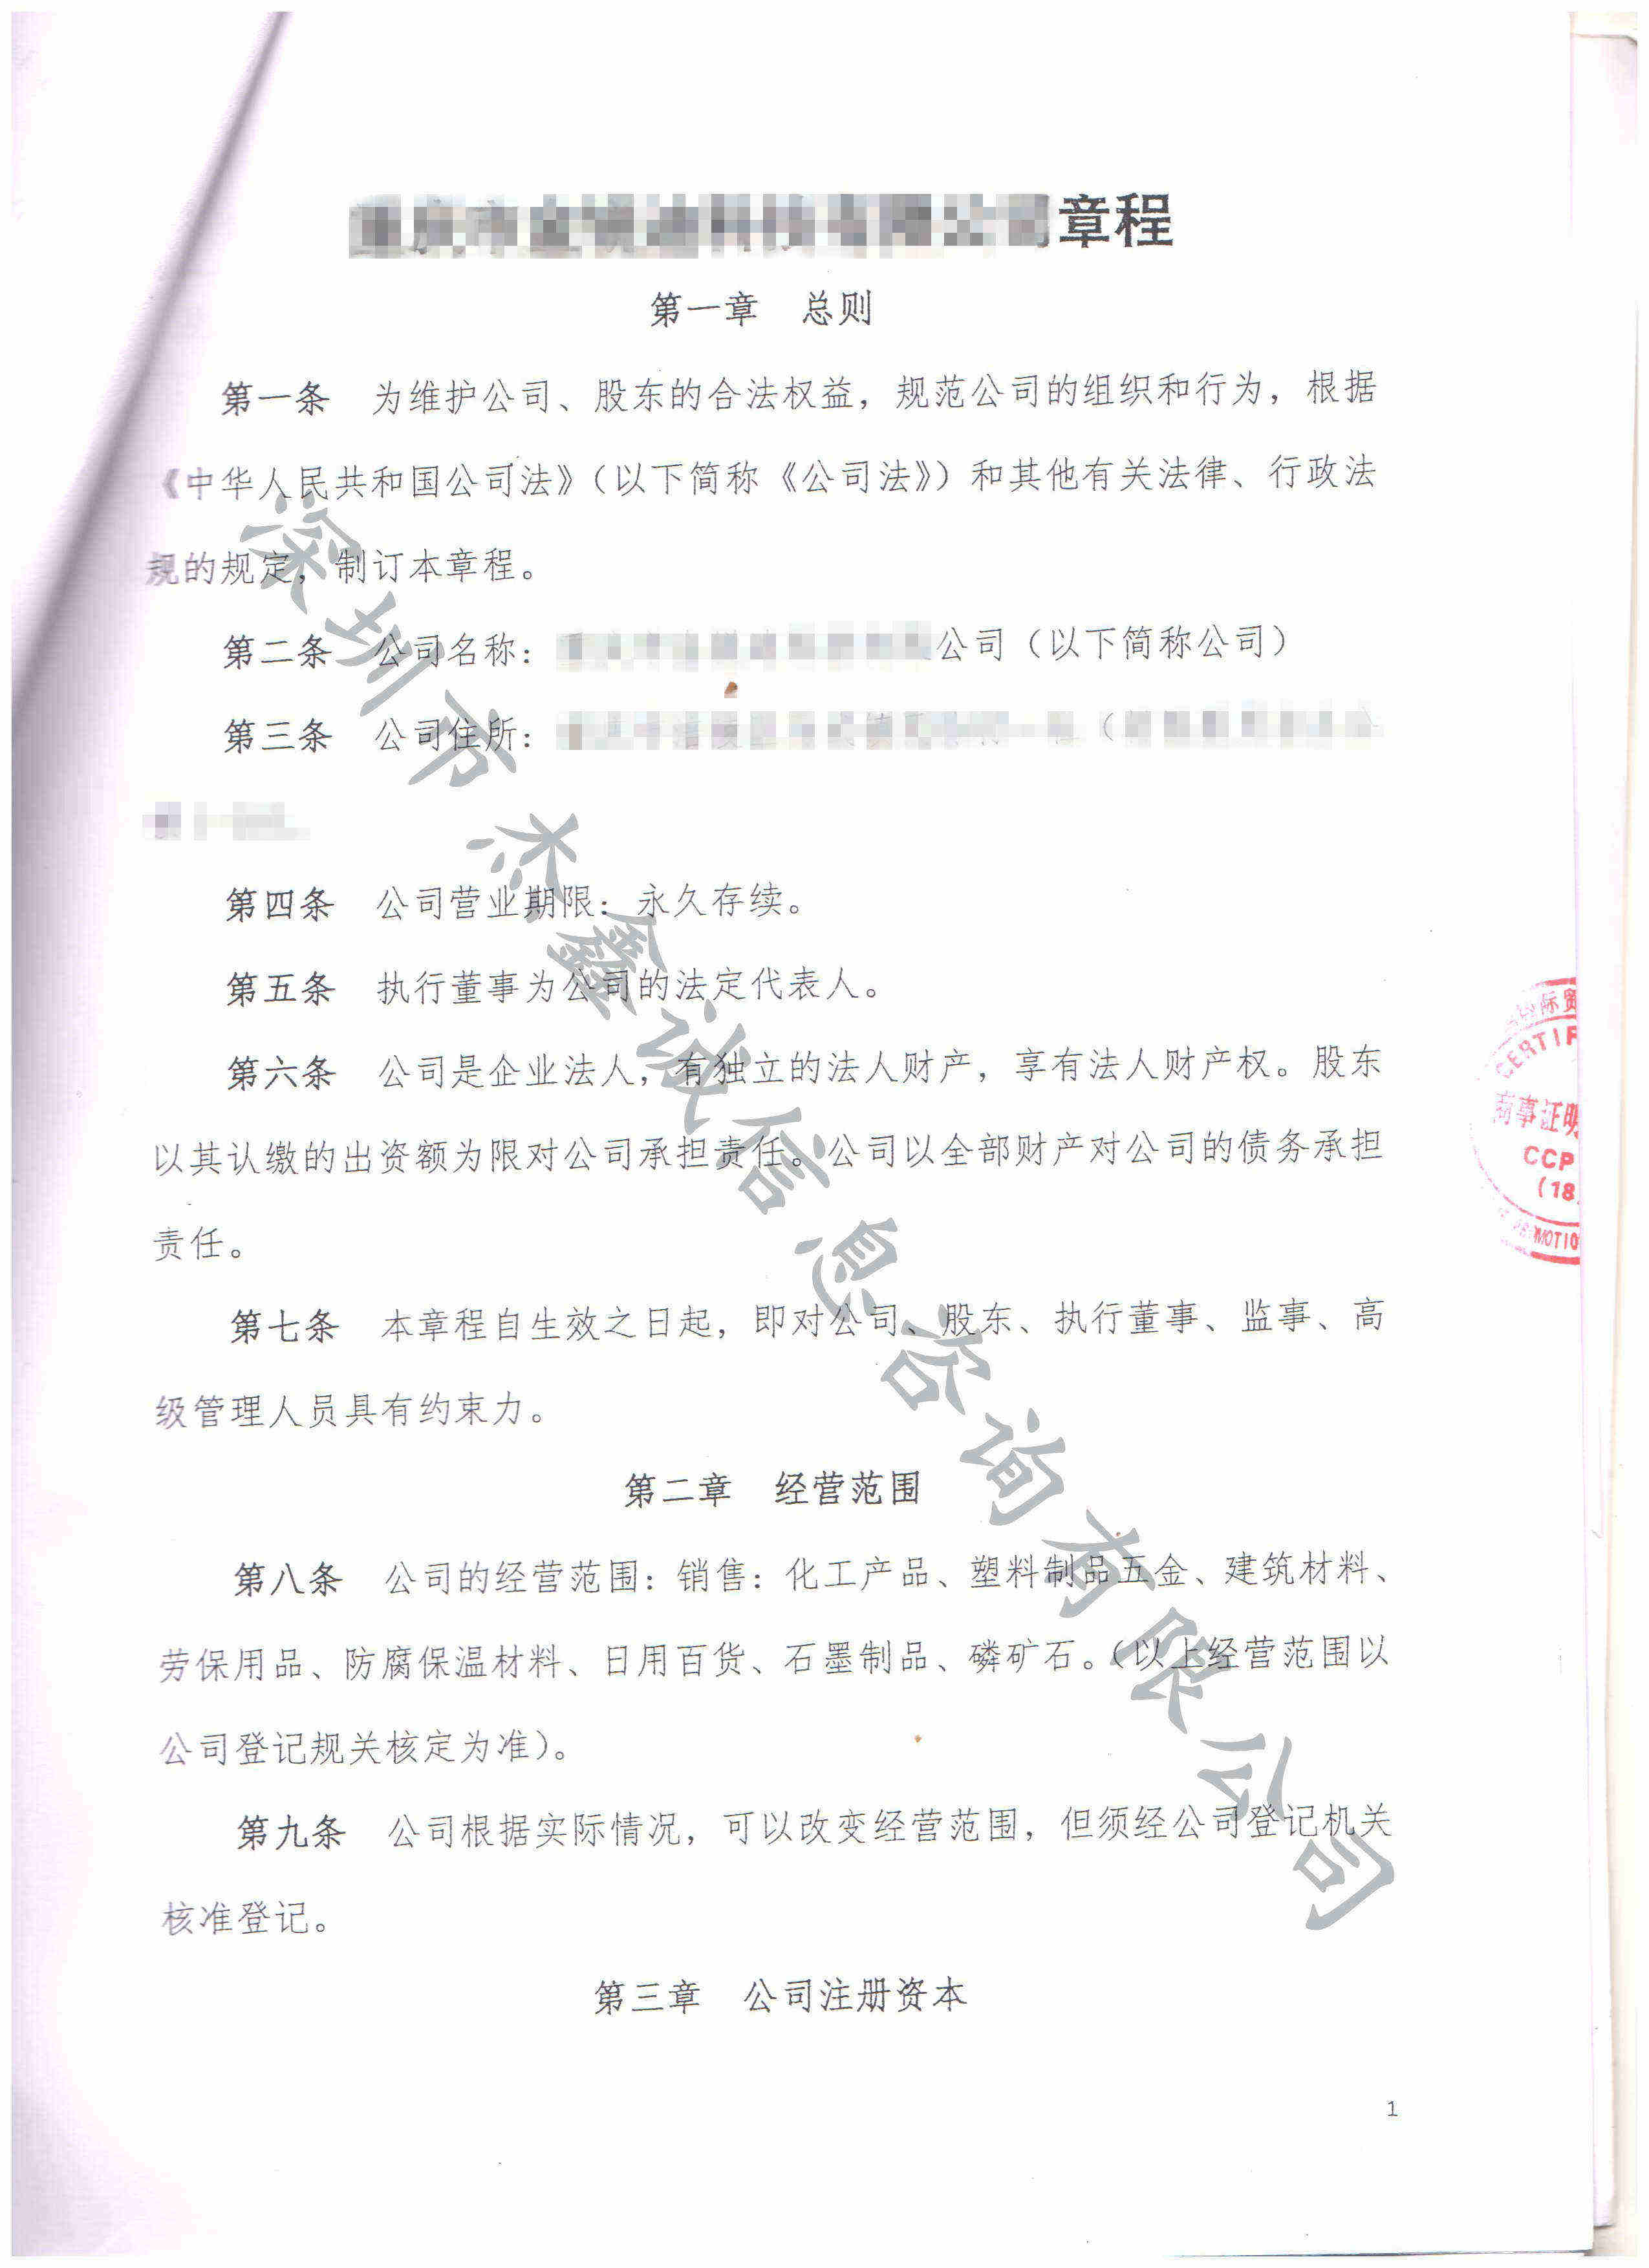 章程
第一章 总则
第一条 为维护公司、股东的合法权益，规范公司的组织和行为，根据
《中华人民共和国公司法》（以下简称《公司法》）和其他有关法律、行政法
规的规定，制订本章程。
第二条 公司名称：公司（以下简称公司）
第三条 公司住所：
第四条 公司营业期限：永久存续。
第五条 执行董事为公司的法定代表人。
第六条 公司是企业法人，有独立的法人财产，享有法人财产权。股东
以其认缴的出资额为限对公司承担责任。公司以全部财产对公司的债务承担
责任。
第七条 本章程自生效之日起，即对公司、股东、执行董事、监事、高
级管理人员具有约束力。
第二章 经营范围
第八条 公司的经营范围：销售：化工产品、塑料制品五金、建筑材料、
劳保用品、防腐保温材料、日用百货、石墨制品、磷矿石。（以上经营范围以
公司登记规关核定为准）。
第九条 公司根据实际情况，可以改变经营范围，但须经公司登记机关
核准登记。
第三章 公司注册资本
1
深圳市杰鑫诚信息咨询有限公司
际贸
CERTIF
商事证明
CCP
(18
MOTIO